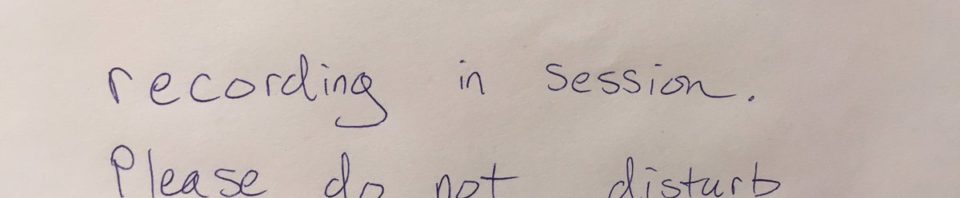 recording in session.
Please do not disturb